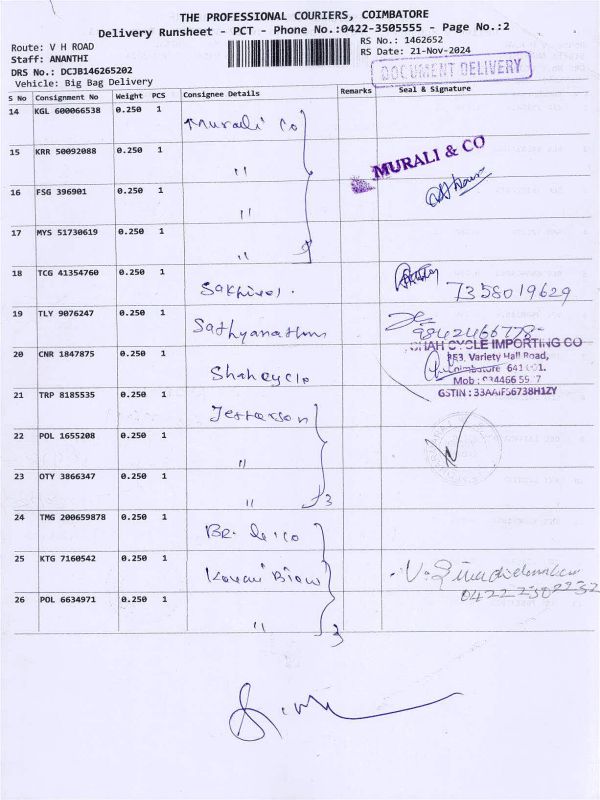 THE PROFESSIONAL COURIERS, COIMBATORE
Delivery Runsheet - PCT - Phone No.:0422-3505555 - Page No.:2
Route: V H ROAD
RS No.: 1462652
Staff: ANANTHI
RS Date: 21-Nov-2024
DRS No.: DCJB146265202
DOCUMENT DELIVERY
Vehicle: Big Bag Delivery
S No Consignment No Weight PCS Consignee Details Remarks Seal & Signature
14 KGL 600066538 0.250 1 Murali Co
15 KRR 50092088 0.250 1 "
MURALI & CO
16 FSG 396901 0.250 1 "
17 MYS 51730619 0.250 1 "
18 TCG 41354760 0.250 1 Sakhivel. 7358019629
19 TLY 9076247 0.250 1
20 CNR 1847875 0.250 1 Shah cycle
SHAH CYCLE IMPORTING CO
Variety Hall Road,
Coimbatore 641 001.
Mob :
GSTIN : 33AAIFS6738H1ZY
21 TRP 8185535 0.250 1 Jefferson
22 POL 1655208 0.250 1 "
23 OTY 3866347 0.250 1 " 3
24 TMG 200659878 0.250 1
25 KTG 7160542 0.250 1
26 POL 6634971 0.250 1 " 3